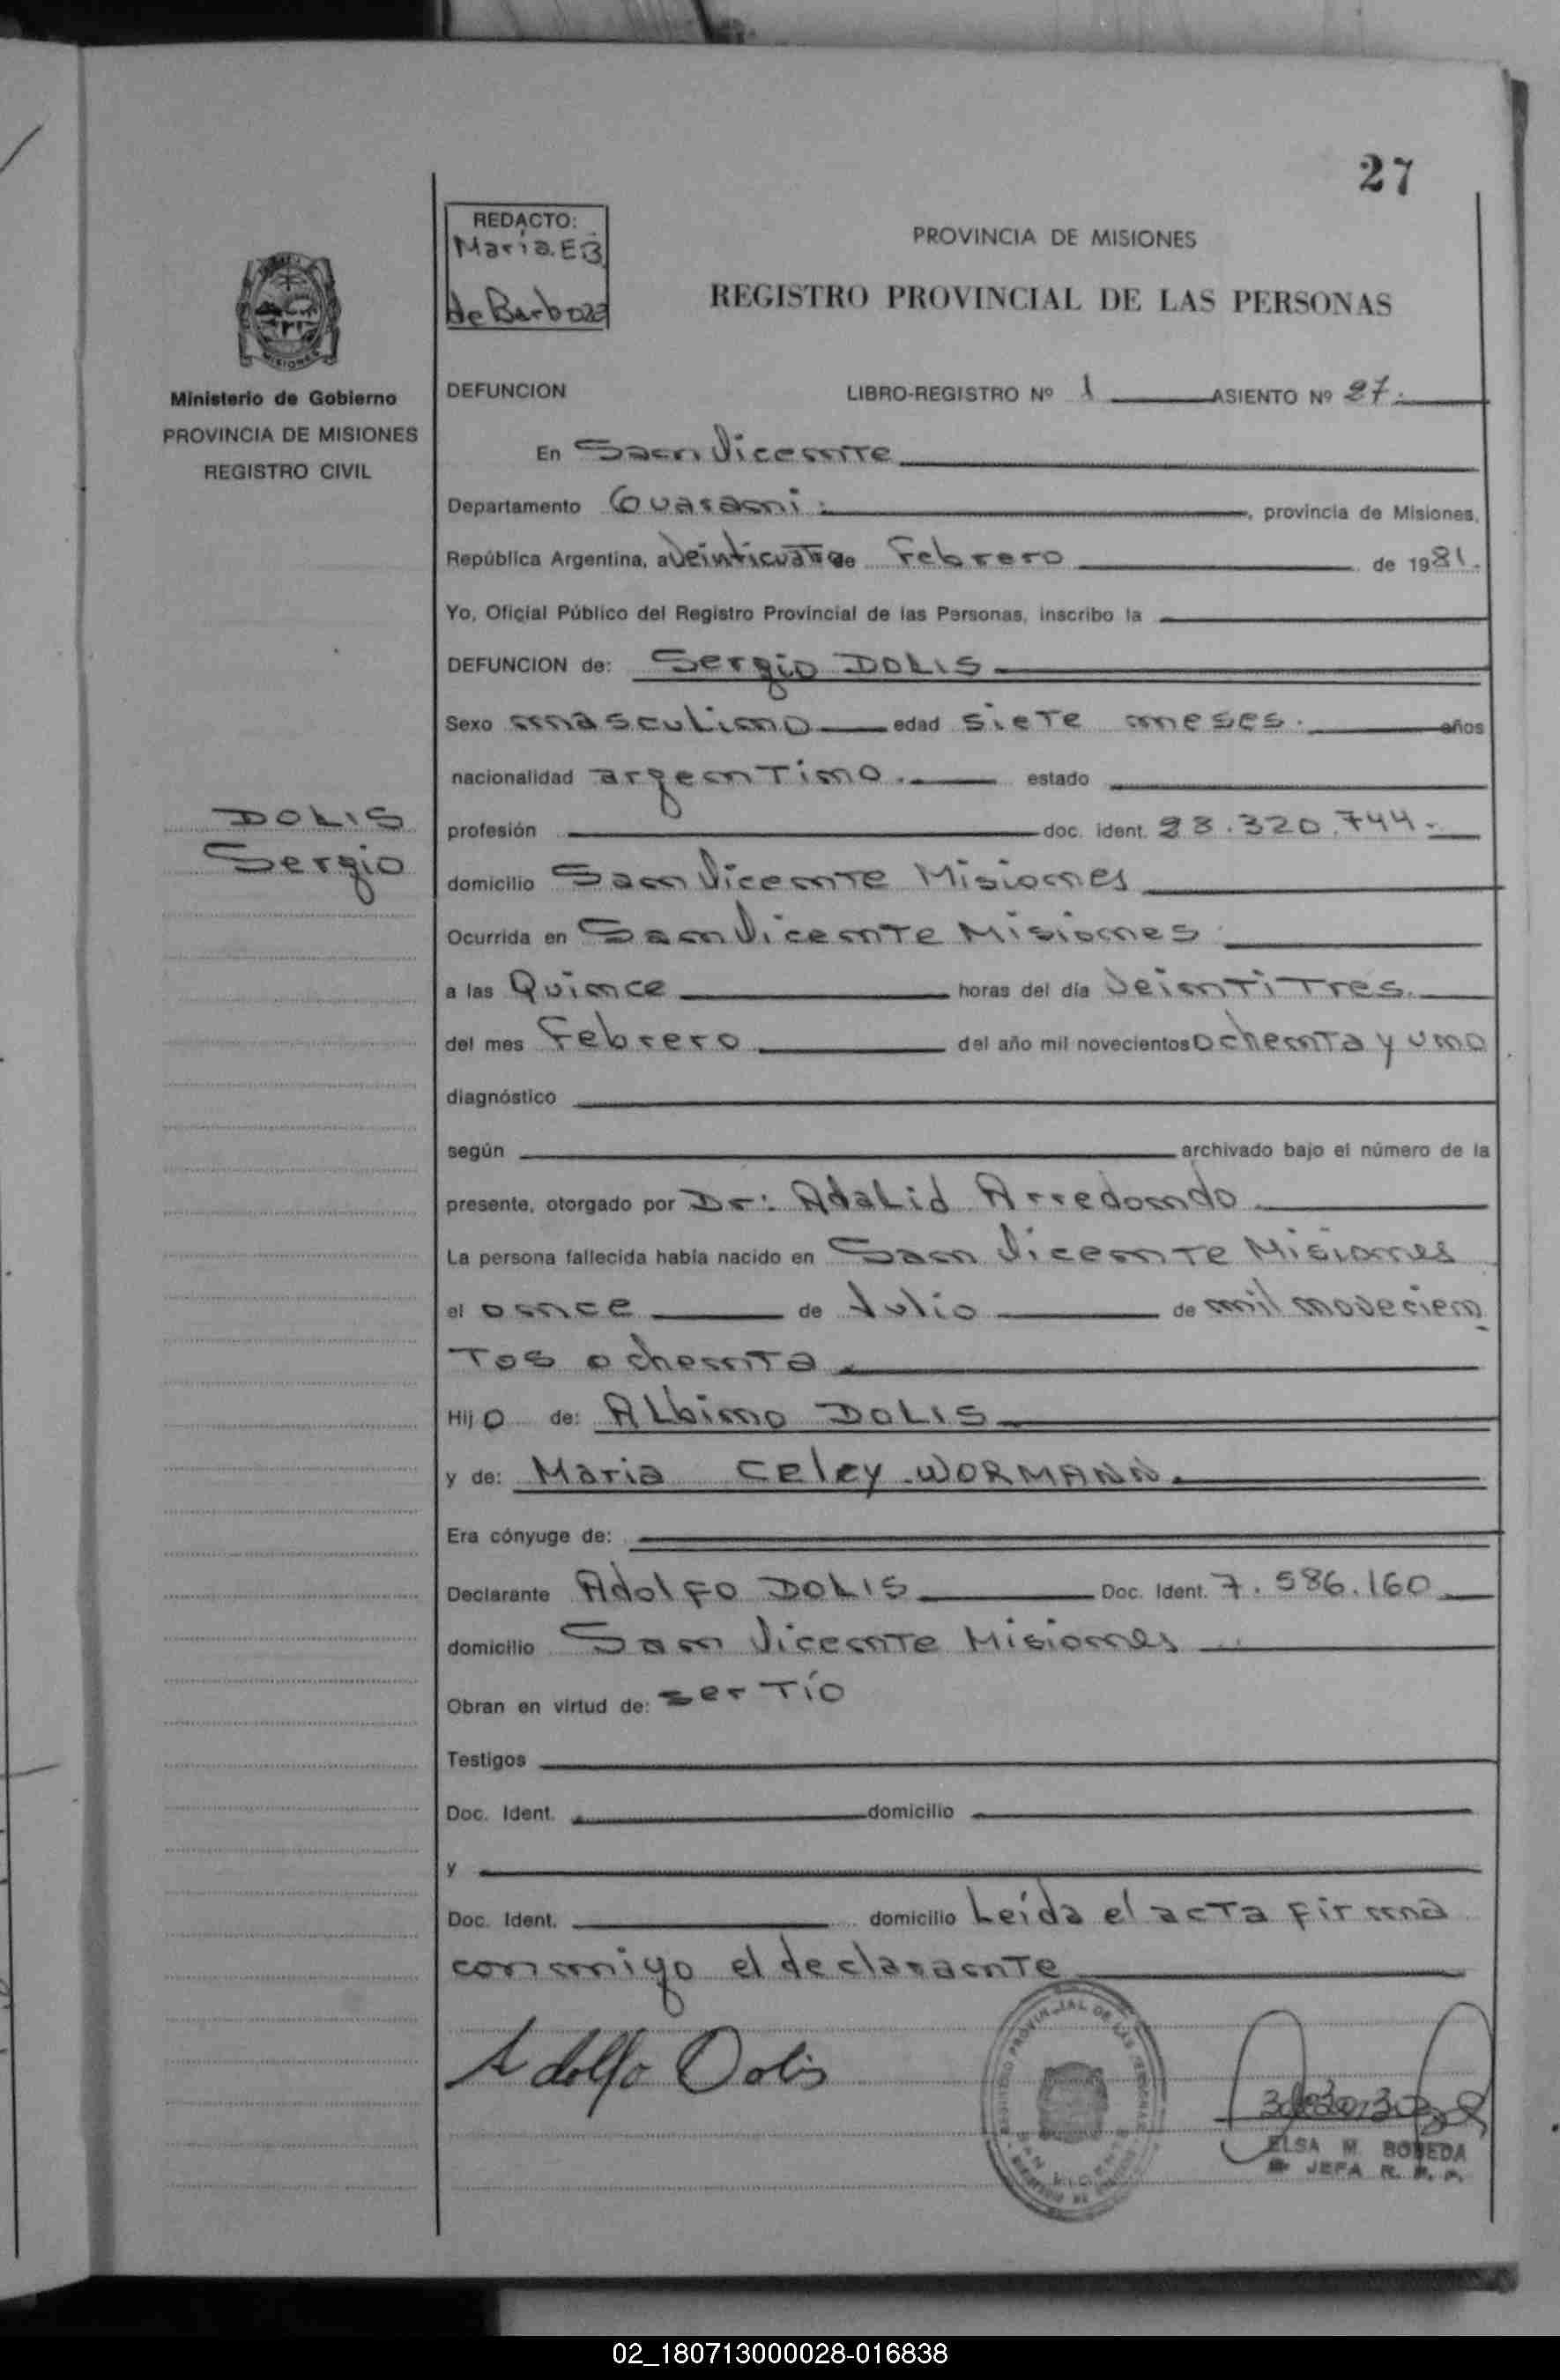 27
REDACTO:
Maria. E B
de Barboza
PROVINCIA DE MISIONES
REGISTRO PROVINCIAL DE LAS PERSONAS
MISIONES
Ministerio de Gobierno
PROVINCIA DE MISIONES
REGISTRO CIVIL
DEFUNCION LIBRO-REGISTRO Nº 1 ASIENTO Nº 27.
En San Vicente
Departamento Guarani. , provincia de Misiones,
República Argentina, a Veinticuatro de Febrero de 1981.
Yo, Oficial Público del Registro Provincial de las Personas, inscribo la
DEFUNCION de: Sergio DOLIS
Sexo masculino edad siete meses. años
nacionalidad argentino. estado
DOLIS
Sergio
profesión doc. ident. 28.320.744.-
domicilio San Vicente Misiones
Ocurrida en San Vicente Misiones
a las Quince horas del día Veintitres.
del mes Febrero del año mil novecientos ochenta y uno
diagnóstico
según archivado bajo el número de la
presente, otorgado por Dr: Adalid Arredondo
La persona fallecida había nacido en San Vicente Misiones
el once de Julio de mil novecien
tos ochenta.
Hijo de: Albino DOLIS
y de: Maria Celey WORMANN.
Era cónyuge de:
Declarante Adolfo DOLIS Doc. Ident. 7.586.160
domicilio San Vicente Misiones
Obran en virtud de: ser Tío
Testigos
Doc. Ident. domicilio
y
Doc. Ident. domicilio Leída el acta firma
conmigo el declarante
Adolfo Dolis
REGISTRO PROVINCIAL DE LAS PERSONAS
SAN VICENTE
ELSA M. BOVEDA
JEFA R. P. P.
02_180713000028-016838